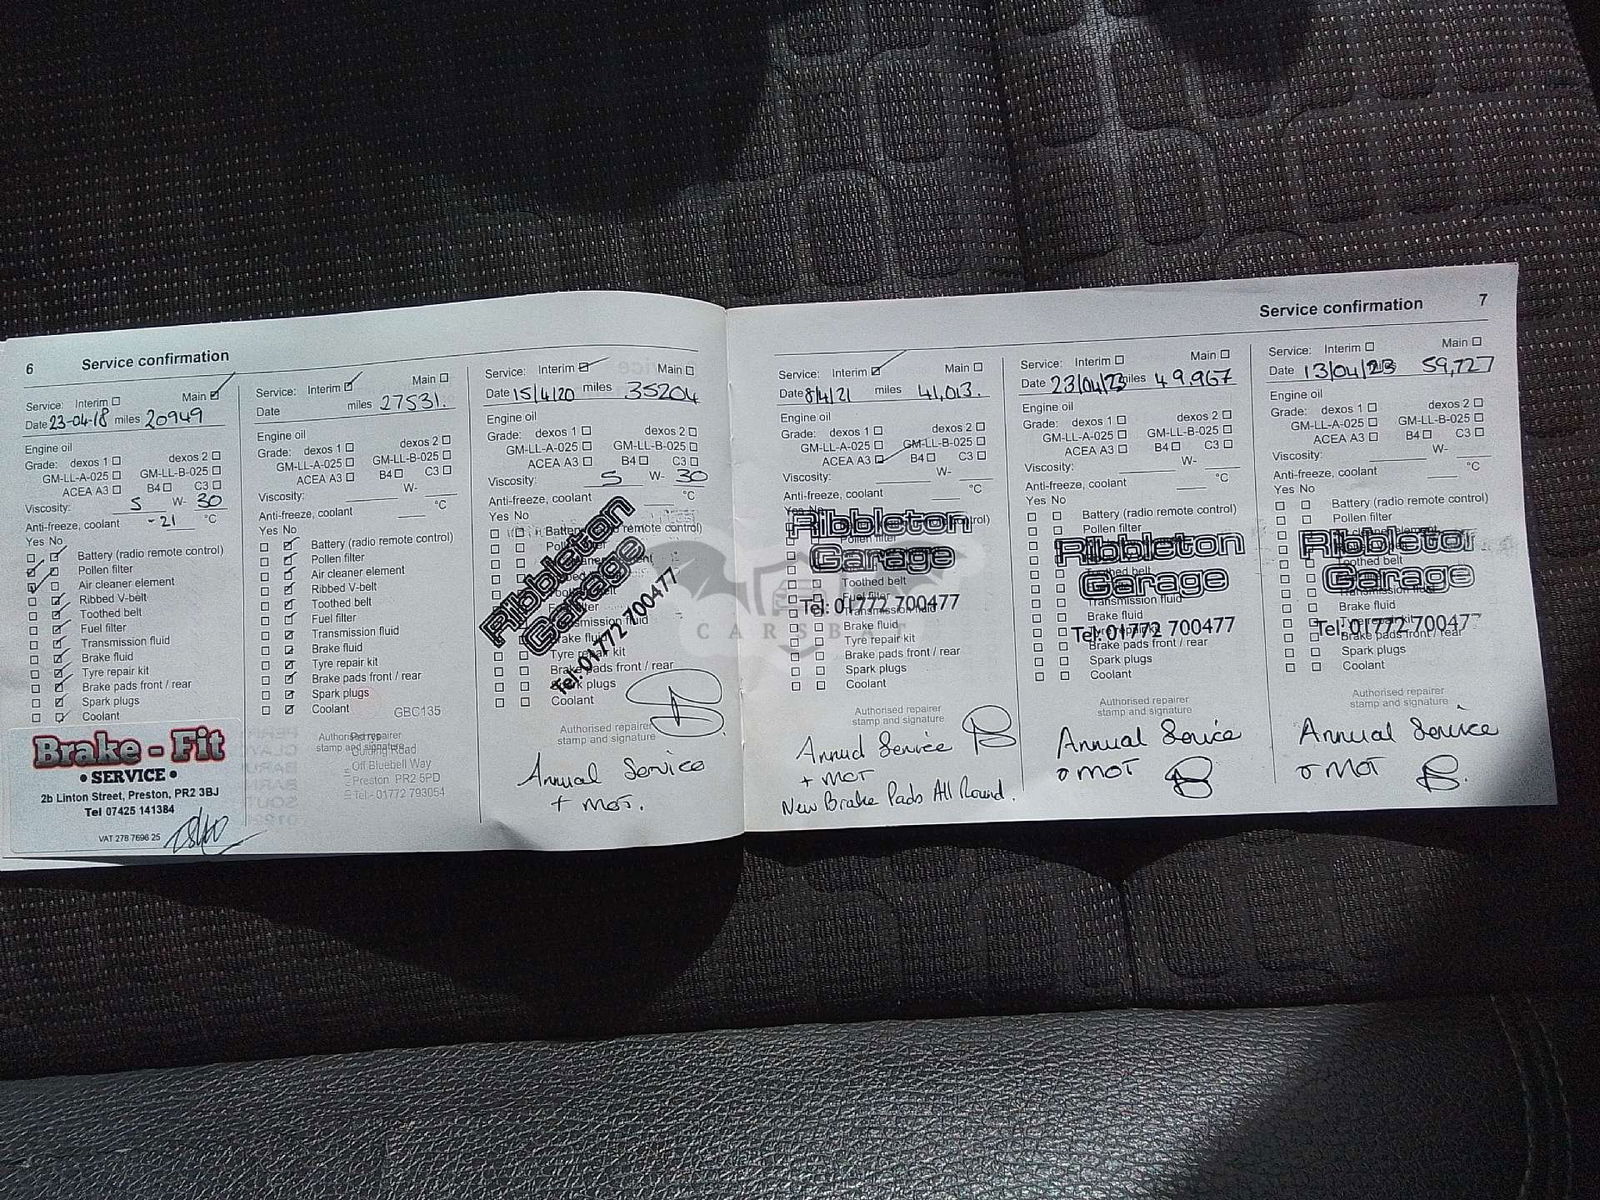 6 Service confirmation
Service: Interim Main
Date 23-04-18 miles 20949
Engine oil
Grade: dexos 1 dexos 2
GM-LL-A-025 GM-LL-B-025
ACEA A3 B4 C3
Viscosity: 5 W- 30
Anti-freeze, coolant -21 °C
Yes No
Battery (radio remote control)
Pollen filter
Air cleaner element
Ribbed V-belt
Toothed belt
Fuel filter
Transmission fluid
Brake fluid
Tyre repair kit
Brake pads front / rear
Spark plugs
Coolant
Brake - Fit
• SERVICE •
2b Linton Street, Preston, PR2 3BJ
Tel 07425 141384
VAT 278 7696 25
Service: Interim Main
Date miles 27531.
Engine oil
Grade: dexos 1 dexos 2
GM-LL-A-025 GM-LL-B-025
ACEA A3 B4 C3
Viscosity: W-
Anti-freeze, coolant °C
Yes No
Battery (radio remote control)
Pollen filter
Air cleaner element
Ribbed V-belt
Toothed belt
Fuel filter
Transmission fluid
Brake fluid
Tyre repair kit
Brake pads front / rear
Spark plugs
Coolant
GBC135
Authorised repairer
stamp and signature
Road
Off Bluebell Way
Preston PR2 5PD
Tel:- 01772 793054
Service: Interim Main
Date 15/4/20 miles 35204
Engine oil
Grade: dexos 1 dexos 2
GM-LL-A-025 GM-LL-B-025
ACEA A3 B4 C3
Viscosity: 5 W- 30
Anti-freeze, coolant °C
Yes No
Ribbleton
Garage
Tel: 01772 700477
Brake fluid
Tyre repair kit
Brake pads front / rear
Spark plugs
Coolant
Authorised repairer
stamp and signature
Annual Service
+ MOT.
Service confirmation 7
Service: Interim Main
Date 8/4/21 miles 41,013.
Engine oil
Grade: dexos 1 dexos 2
GM-LL-A-025 GM-LL-B-025
ACEA A3 B4 C3
Viscosity: W-
Anti-freeze, coolant °C
Yes No
Ribbleton
Garage
Toothed belt
Tel: 01772 700477
Brake fluid
Tyre repair kit
Brake pads front / rear
Spark plugs
Coolant
Authorised repairer
stamp and signature
Annual Service
+ MOT
New Brake Pads All Round.
Service: Interim Main
Date 23/04/23 miles 49,967
Engine oil
Grade: dexos 1 dexos 2
GM-LL-A-025 GM-LL-B-025
ACEA A3 B4 C3
Viscosity: W-
Anti-freeze, coolant °C
Yes No
Battery (radio remote control)
Pollen filter
Ribbleton
Garage
Toothed belt
Transmission fluid
Brake fluid
Tel: 01772 700477
Brake pads front / rear
Spark plugs
Coolant
Authorised repairer
stamp and signature
Annual Service
& MOT
Service: Interim Main
Date 13/04/23 59,727
Engine oil
Grade: dexos 1 dexos 2
GM-LL-A-025 GM-LL-B-025
ACEA A3 B4 C3
Viscosity: W-
Anti-freeze, coolant °C
Yes No
Battery (radio remote control)
Pollen filter
Ribbleton
Garage
Toothed belt
Transmission fluid
Brake fluid
Tel: 01772 700477
Brake pads front / rear
Spark plugs
Coolant
Authorised repairer
stamp and signature
Annual Service
& MOT
CARSBAT